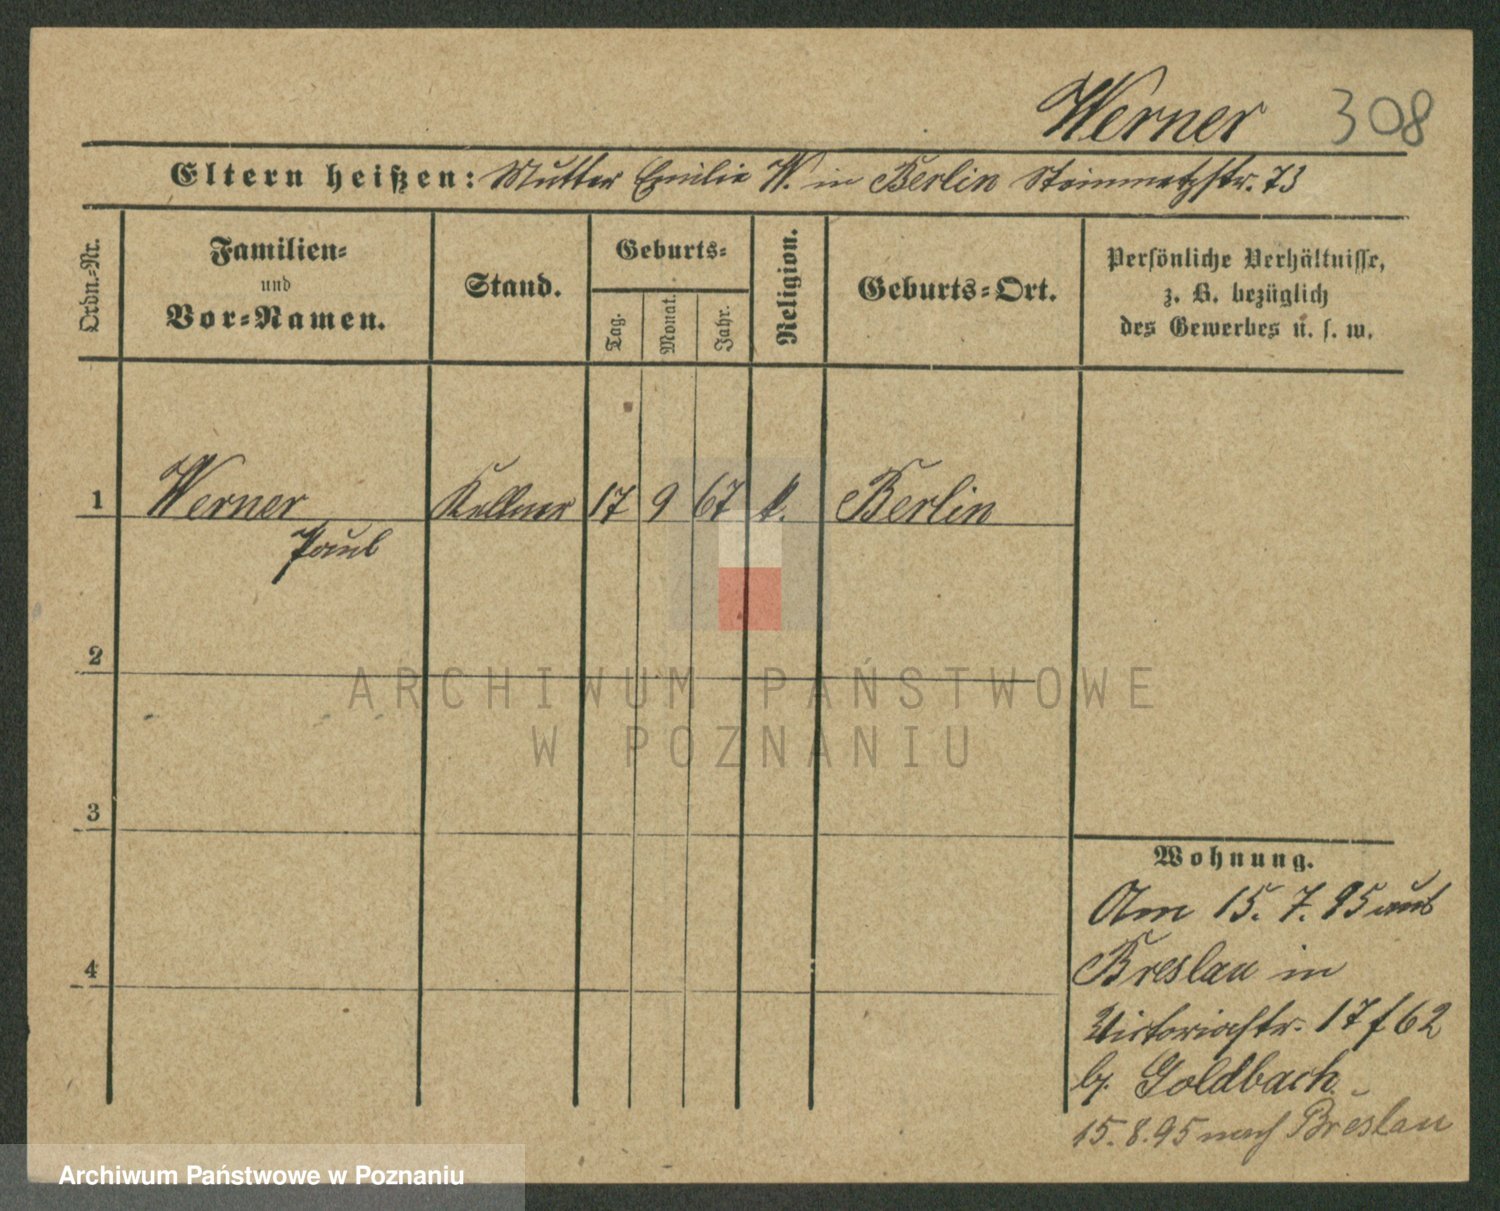 Werner 308
Eltern heißen: Mutter Emilie W. in Berlin Steinmetzstr. 73
Ordn.-Nr.
Familien-
und
Vor-Namen.
Stand.
Geburts-
Tag.
Monat.
Jahr.
Religion.
Geburts-Ort.
Persönliche Verhältnisse,
z. B. bezüglich
des Gewerbes u. s. w.
1 Werner Kellner 17 9 67 k. Berlin
Paul
2
3
4
Wohnung.
Am 15. 7. 95 aus
Breslau in
Victoriastr. 17 f 62
b. Goldbach
15. 8. 95 nach Breslau
ARCHIWUM PAŃSTWOWE
W POZNANIU
Archiwum Państwowe w Poznaniu